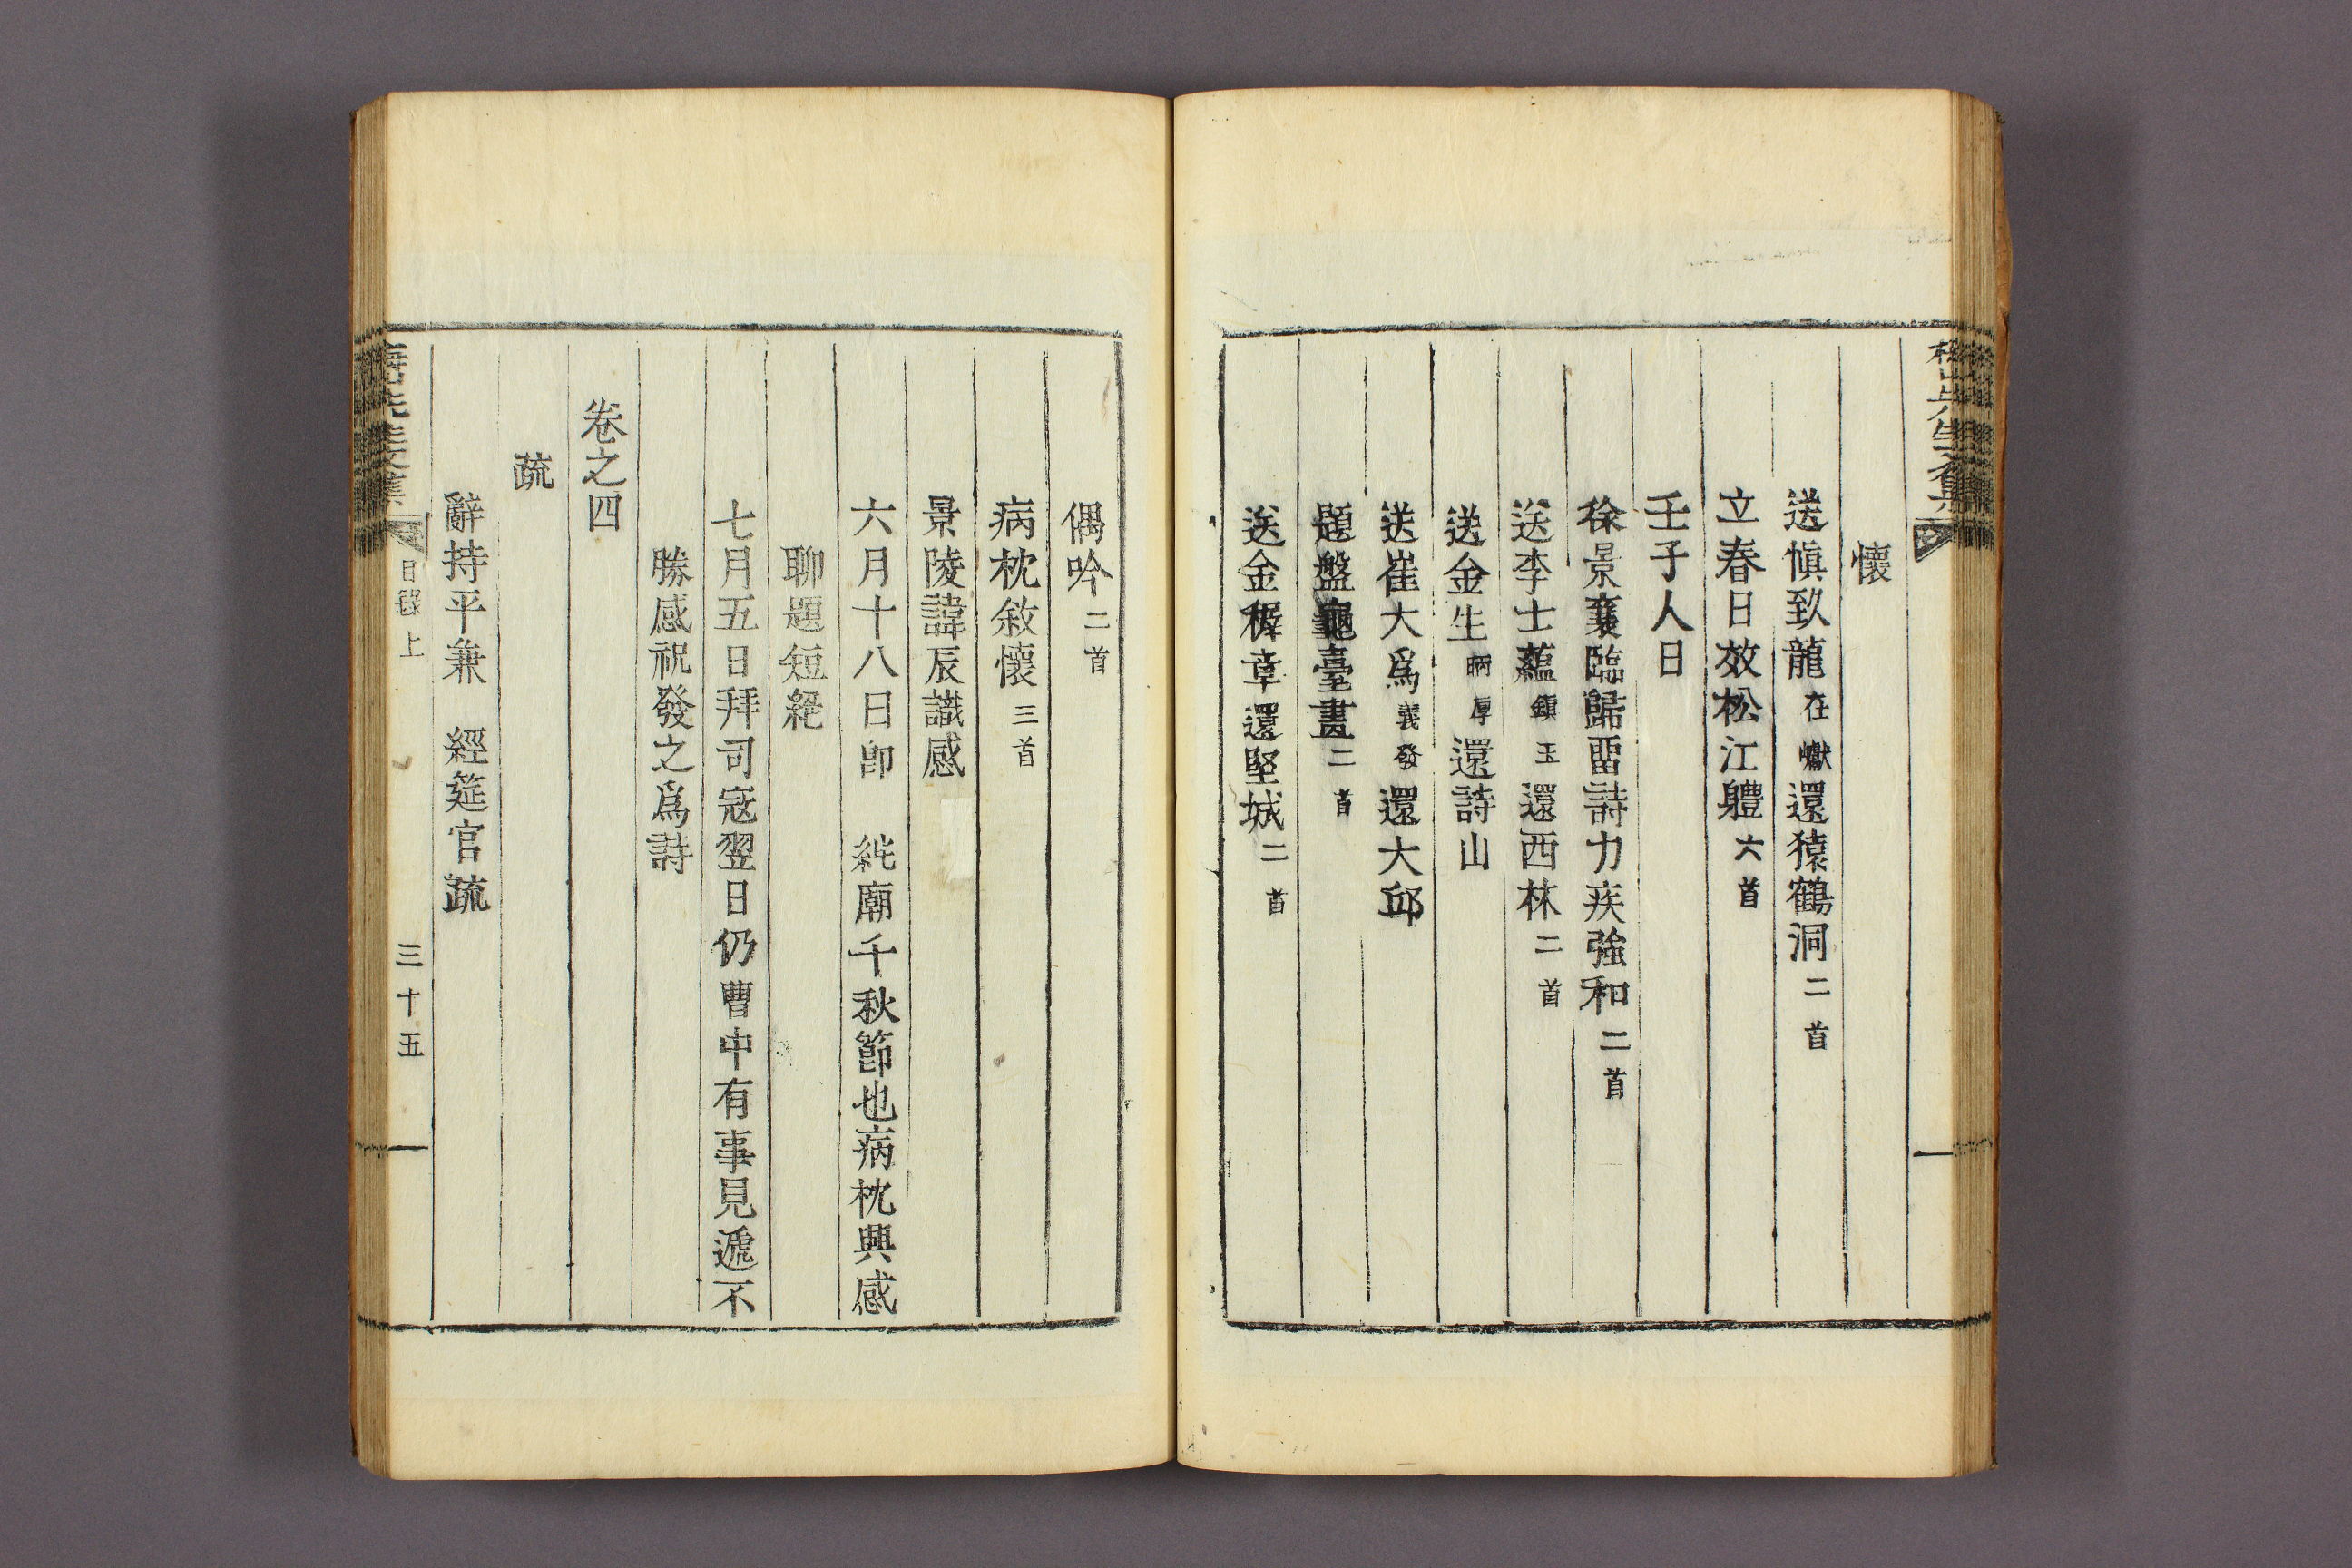 懷
送愼致龍在巘還猿鶴洞二首
立春日效松江體六首
壬子人日
徐景襄臨歸留詩力疾強和二首
送李士蘊鎭玉還西林二首
送金生昞厚還詩山
送崔大爲義發還大邱
題盤龜臺畫二首
送金穉章還堅城二首
偶吟二首
病枕敘懷三首
景陵諱辰識感
六月十八日卽 純廟千秋節也病枕興感
聊題短絕
七月五日拜司寇翌日仍曹中有事見遞不
勝感祝發之爲詩
卷之四
疏
辭持平兼 經筵官疏
目錄上 三十五